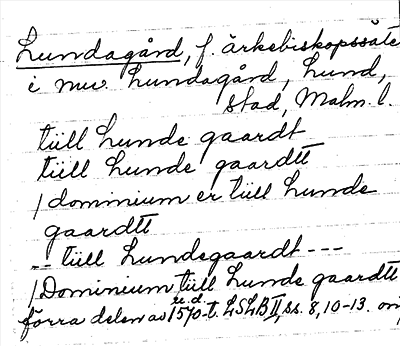 Lundagård, f. ärkebiskopssäte
i nuv. Lundagård, Lund,
stad, Malm. l.
tüll Lunde gaardt
tüll Lunde gaardtt
/ dominium er tüll Lunde
gaardtt
-- tüll Lundegaardt ---
/ Dominium tüll Lunde gaardtt
förra delen av 1570-t. LSLB II, ss. 8, 10-13. om